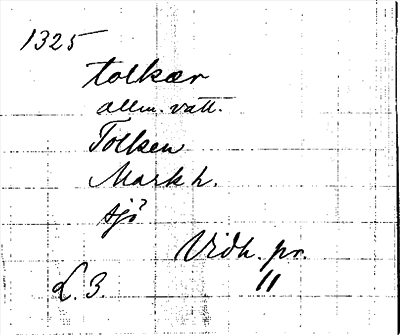 1325
tolkær
allm. vatt.
Tolken
Mark h.
sjö
Vidh. pr.
L. 3. 11